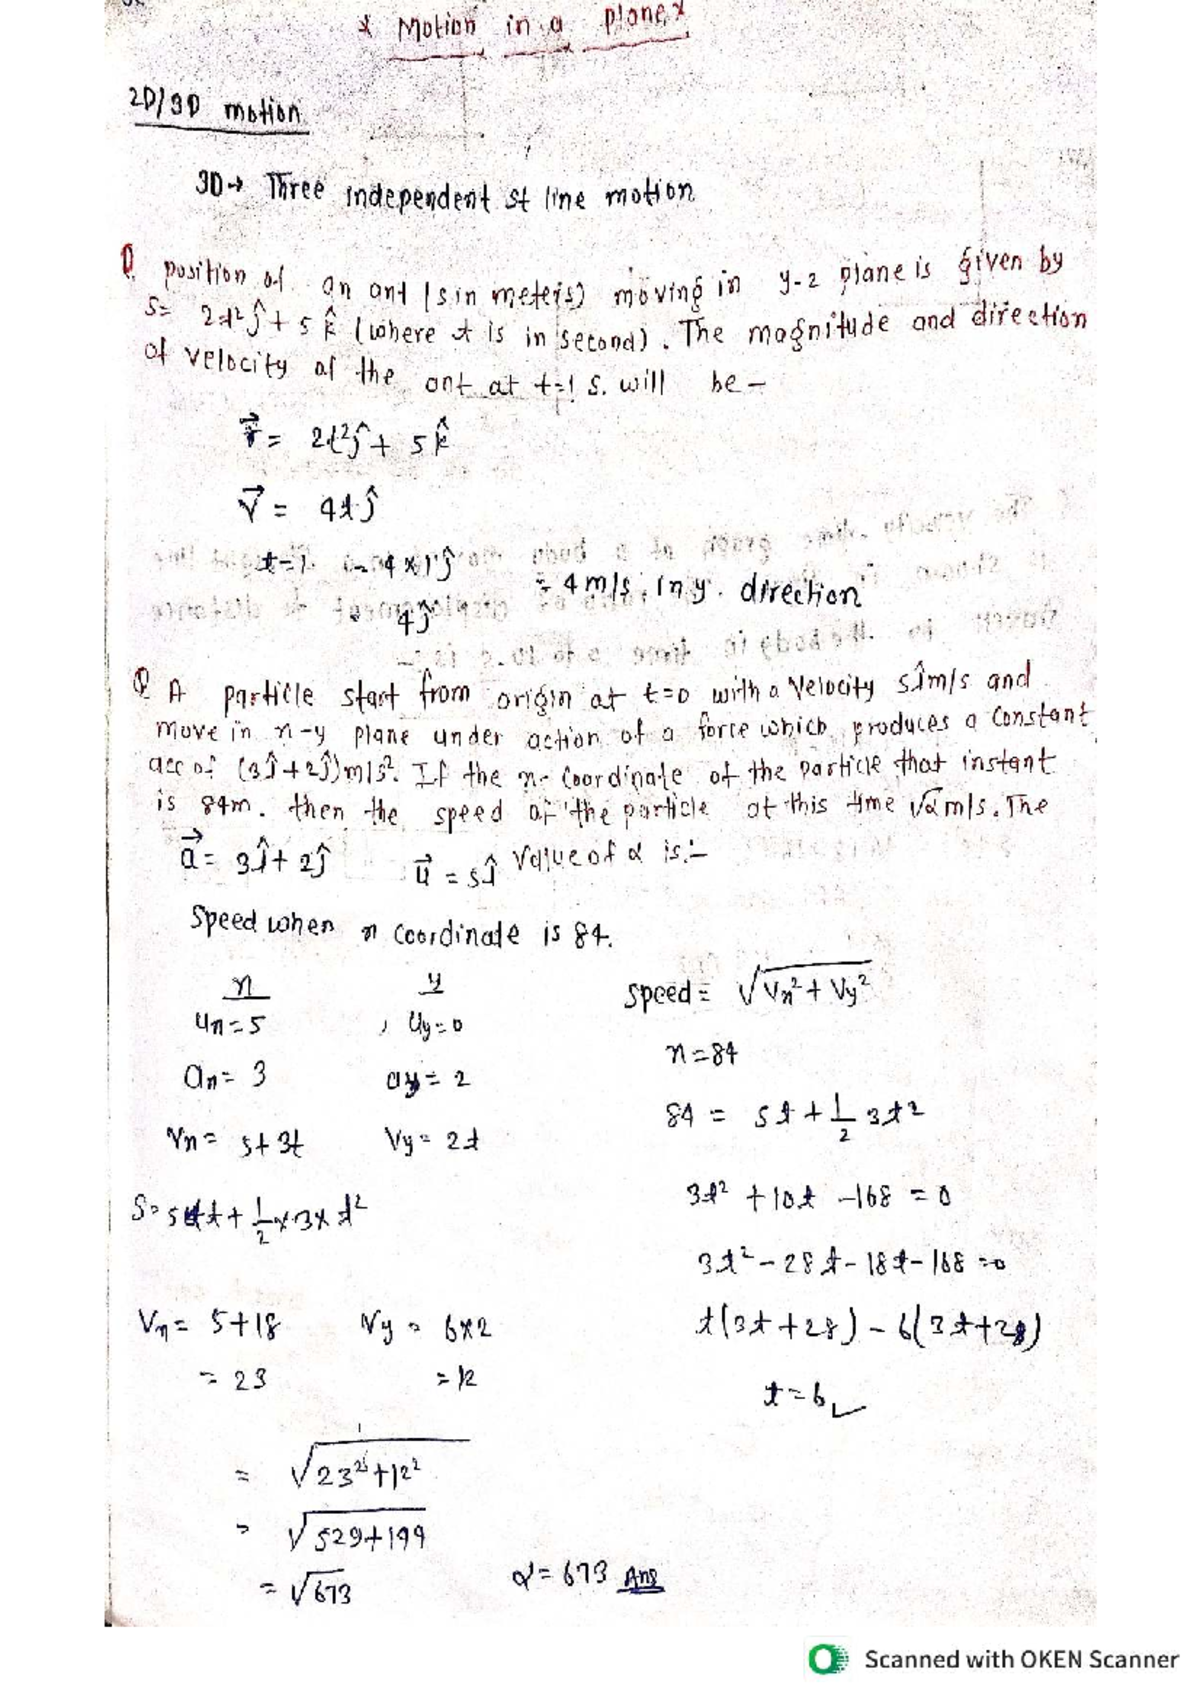 * Motion in a plane *
2D/3D motion
3D→ Three independent st line motion
Q. position of an ant (s in meters) moving in y-z plane is given by
S= 2t²ĵ + 5k̂ (where t is in second). The magnitude and direction
of velocity of the ant at t=1 s. will be —
r⃗ = 2t²ĵ + 5k̂
v⃗ = 4tĵ
t=1. = 4×1ĵ
= 4ĵ
= 4m/s. in y. direction
Q A particle start from origin at t=0 with a velocity 5î m/s and
move in x-y plane under action of a force which produces a constant
acc of (3î+2ĵ)m/s². If the x- coordinate of the particle that instant
is 84m. then the speed of the particle at this time √α m/s. The
value of α is:-
a⃗ = 3î+2ĵ u⃗ = 5î
Speed when x coordinate is 84.
x y
ux=5 , uy=0
ax= 3 ay= 2
Vx= 5+3t Vy= 2t
S= 5t+ 1/2×3×t²
speed = √Vx²+Vy²
x=84
84 = 5t + 1/2 3t²
3t² +10t -168 = 0
3t² - 28t - 18t - 168 =0
t(3t+28) - 6(3t+28)
t=6 ✓
Vx= 5+18 Vy = 6×2
= 23 = 12
= √23²+12²
= √529+144
= √673
α= 673 Ans
Scanned with OKEN Scanner